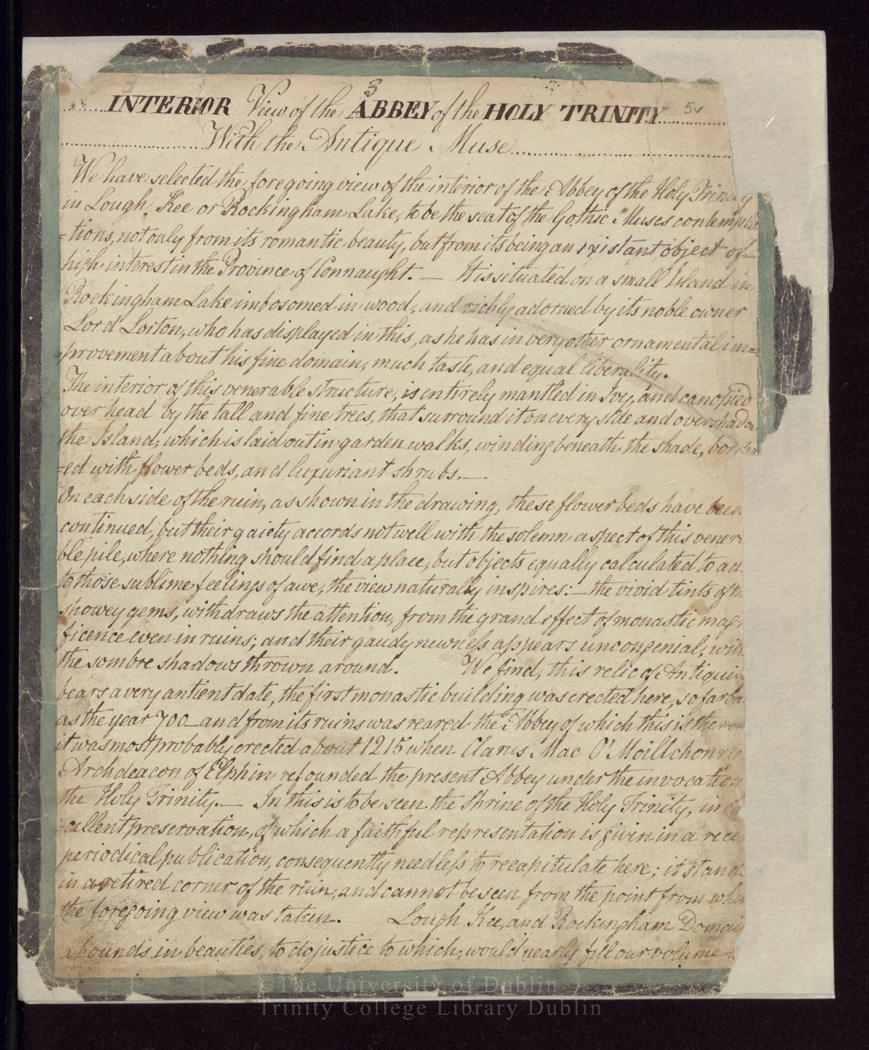 3 3
INTERIOR View of the ABBEY of the HOLY TRINITY 5v
With the Antique Muse
We have selected the foregoing view of the interior of the Abbey of the Holy Trinity
in Lough Kee or Rockingham Lake, to be the seat of the Gothic Muses contempla
-tions, not only from its romantic beauty, but from its being an existant object of
high interest in the Province of Connaught. — It is situated on a small Island in
Rockingham Lake imbosomed in wood, and richly adorned by its noble owner
Lord Lorton, who has displayed in this, as he has in very other ornamental im=
-provement about his fine domain, much taste, and equal liberality.
The interior of this venerable structure, is entirely mantled in Ivy, and canopied
over head by the tall and fine trees, that surround it on every side and overshadow
the Island, which is laid out in garden walks, winding beneath the shade, border
=ed with flower beds, and luxuriant shrubs. —
On each side of the ruin, as shown in the drawing, these flower beds have been
continued, but their gaiety accords not well with the solemn aspect of this venera
ble pile, where nothing should find a place, but objects equally calculated to ad
to those sublime feelings of awe, the view naturally inspires: — the vivid tints of
showey gems, withdraws the attention, from the grand effect of monastic mag
ficence even in ruins; and their gaudy newness appears uncongenial, with
the sombre shadows thrown around. We find, this relic of Antiquity
bears a very antient date, the first monastic building was erected here, so far ba
as the year 700 — and from its ruins was reared the Abbey of which this is the
it was most probably erected about 1215 when Clarus Mac O'Moilchonry
Archdeacon of Elphin refounded the present Abbey under the invocation
the Holy Trinity. — In this is to be seen the Shrine of the Holy Trinity, in ex
=cellent preservation, of which a faithful representation is given in a rece
periodical publication, consequently needless to recapitulate here; it stand
in a retired corner of the ruin, and cannot be seen from the point from whi
the foregoing view was taken. Lough Kee, and Rockingham Domai
abounds in beauties, to do justice to which, would nearly fill our volume
©The University of Dublin
Trinity College Library Dublin